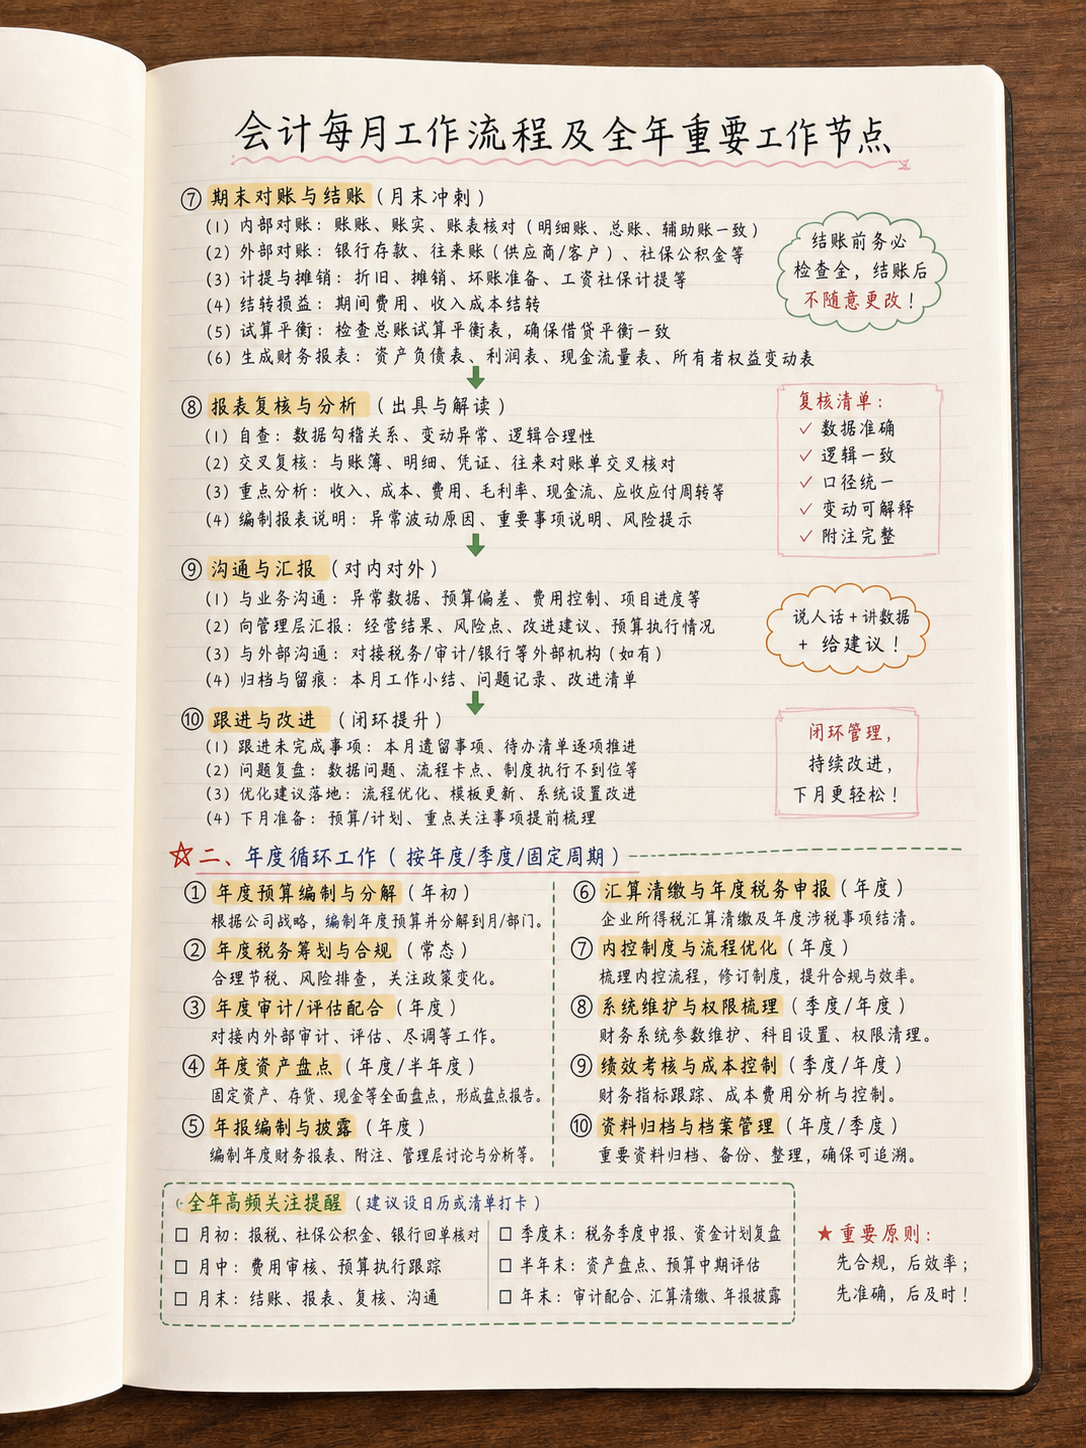 会计每月工作流程及全年重要工作节点
⑦ 期末对账与结账(月末冲刺)
(1) 内部对账：账账、账实、账表核对(明细账、总账、辅助账一致)
(2) 外部对账：银行存款、往来账(供应商/客户)、社保公积金等
(3) 计提与摊销：折旧、摊销、坏账准备、工资社保计提等
(4) 结转损益：期间费用、收入成本结转
(5) 试算平衡：检查总账试算平衡表，确保借贷平衡一致
(6) 生成财务报表：资产负债表、利润表、现金流量表、所有者权益变动表
结账前务必
检查全，结账后
不随意更改！
⑧ 报表复核与分析 (出具与解读)
(1) 自查：数据勾稽关系、变动异常、逻辑合理性
(2) 交叉复核：与账簿、明细、凭证、往来对账单交叉核对
(3) 重点分析：收入、成本、费用、毛利率、现金流、应收应付周转等
(4) 编制报表说明：异常波动原因、重要事项说明、风险提示
复核清单：
✓ 数据准确
✓ 逻辑一致
✓ 口径统一
✓ 变动可解释
✓ 附注完整
⑨ 沟通与汇报 (对内对外)
(1) 与业务沟通：异常数据、预算偏差、费用控制、项目进度等
(2) 向管理层汇报：经营结果、风险点、改进建议、预算执行情况
(3) 与外部沟通：对接税务/审计/银行等外部机构(如有)
(4) 归档与留痕：本月工作小结、问题记录、改进清单
说人话+讲数据
+ 给建议！
⑩ 跟进与改进 (闭环提升)
(1) 跟进未完成事项：本月遗留事项、待办清单逐项推进
(2) 问题复盘：数据问题、流程卡点、制度执行不到位等
(3) 优化建议落地：流程优化、模板更新、系统设置改进
(4) 下月准备：预算/计划、重点关注事项提前梳理
闭环管理，
持续改进，
下月更轻松！
二、年度循环工作(按年度/季度/固定周期)
① 年度预算编制与分解(年初)
根据公司战略，编制年度预算并分解到月/部门。
② 年度税务筹划与合规 (常态)
合理节税、风险排查，关注政策变化。
③ 年度审计/评估配合 (年度)
对接内外部审计、评估、尽调等工作。
④ 年度资产盘点 (年度/半年度)
固定资产、存货、现金等全面盘点，形成盘点报告。
⑤ 年报编制与披露 (年度)
编制年度财务报表、附注、管理层讨论与分析等。
⑥ 汇算清缴与年度税务申报(年度)
企业所得税汇算清缴及年度涉税事项结清。
⑦ 内控制度与流程优化(年度)
梳理内控流程，修订制度，提升合规与效率。
⑧ 系统维护与权限梳理 (季度/年度)
财务系统参数维护、科目设置、权限清理。
⑨ 绩效考核与成本控制 (季度/年度)
财务指标跟踪、成本费用分析与控制。
⑩ 资料归档与档案管理 (年度/季度)
重要资料归档、备份、整理，确保可追溯。
全年高频关注提醒 (建议设日历或清单打卡)
□ 月初：报税、社保公积金、银行回单核对
□ 月中：费用审核、预算执行跟踪
□ 月末：结账、报表、复核、沟通
□ 季度末：税务季度申报、资金计划复盘
□ 半年末：资产盘点、预算中期评估
□ 年末：审计配合、汇算清缴、年报披露
★ 重要原则：
先合规，后效率；
先准确，后及时！